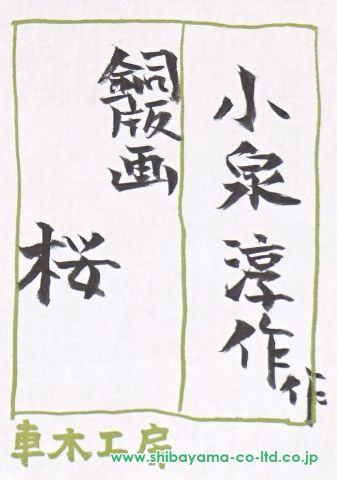 小泉淳作作
銅版画
桜
車木工房
www.shibayama-co-ltd.co.jp